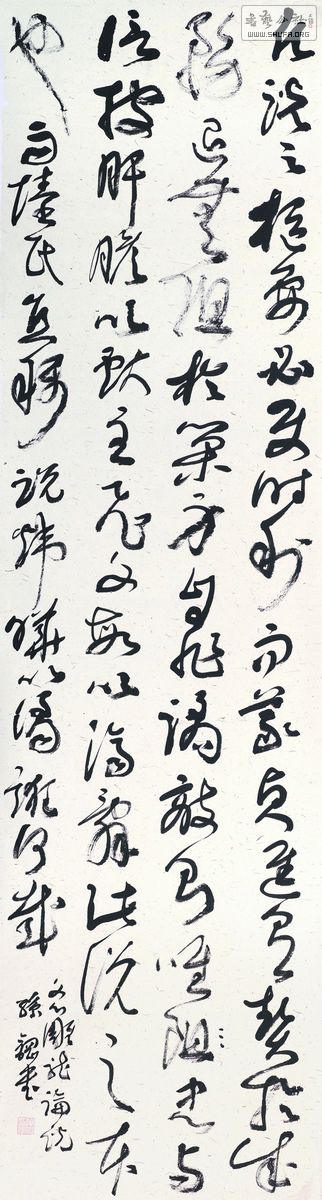 凡說之樞要必使時利而義貞進有契於成
務退無阻於榮身自非譎敵則唯阻忠與
信披肝膽以獻主飛文敏以濟辭此說之本
也而陸氏直稱說煒曄以譎誑何哉
文心雕龍論說
孫書
WWW.SHUFA.ORG